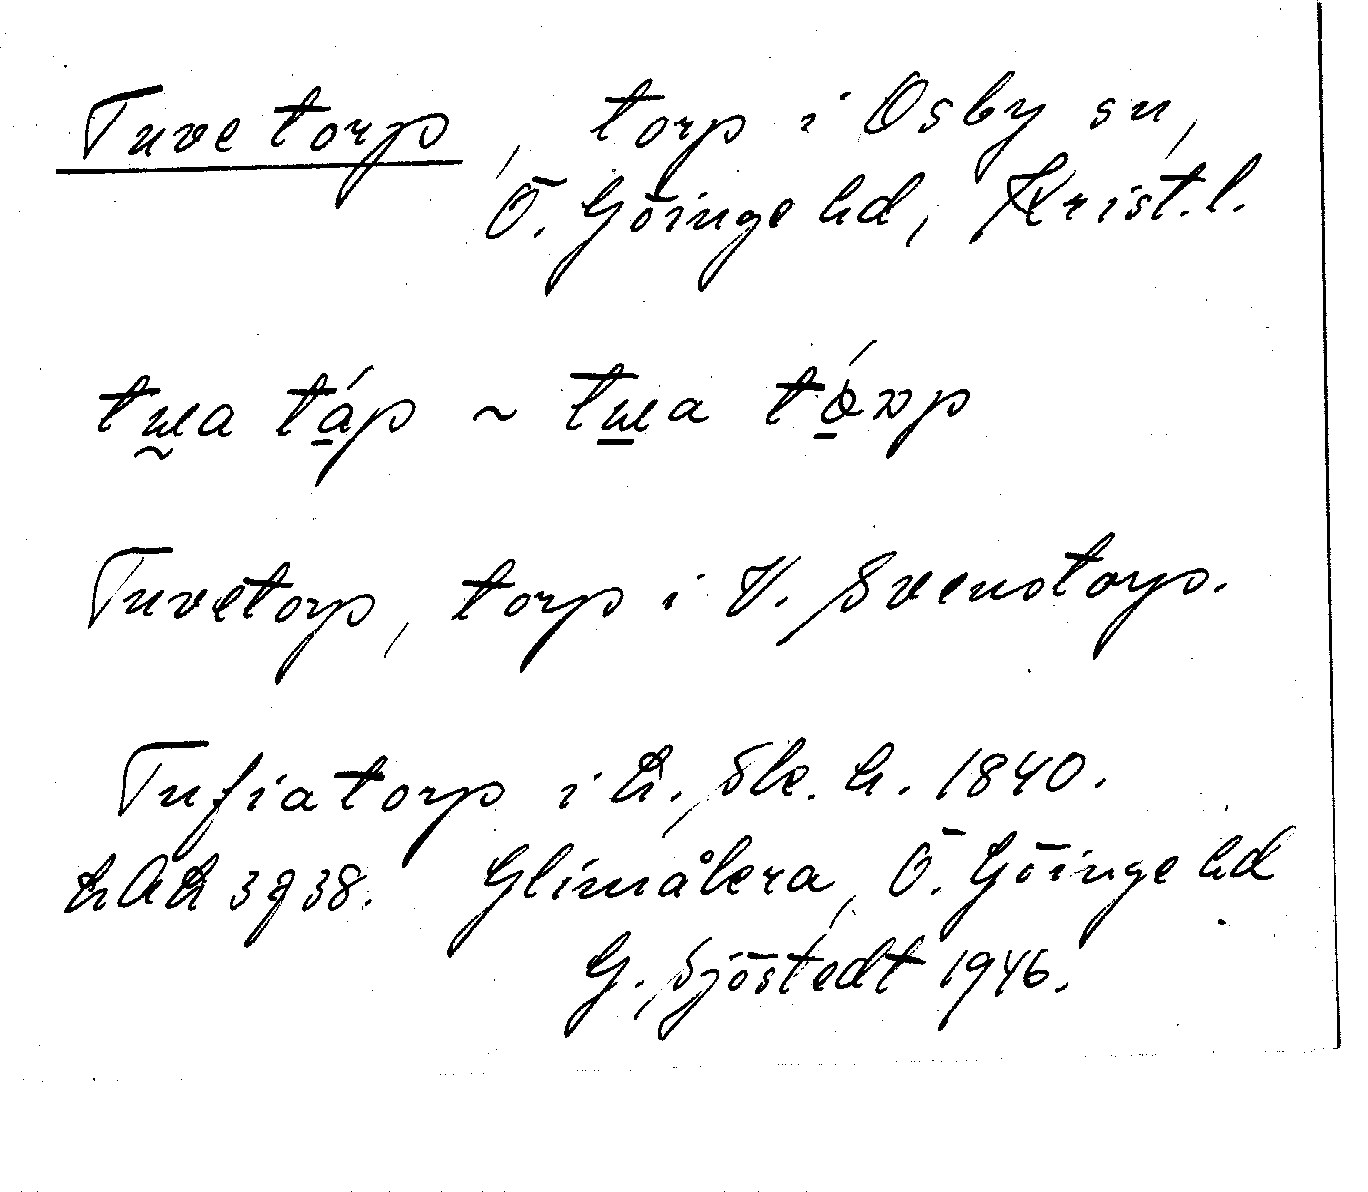 Tuvetorp, torp i Osby sn,
Ö. Göinge hd, Krist. l.
tɯa táp ~ tɯa tórp
Tuvetorp, torp i V. Svenstorp.
Tufiatorp i h., Sk. h. 1840.
Glimåkra, Ö. Göinge hd
G. Sjöstedt 1946.